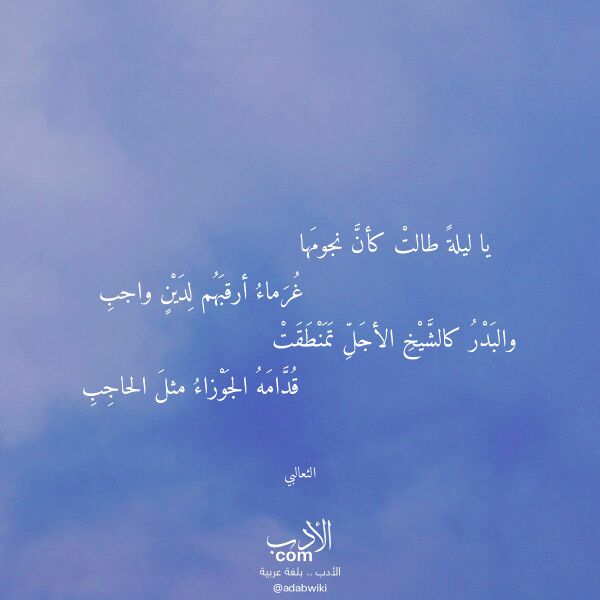 يا ليلةً طالتْ كأنَّ نجومَها
غُرَماءُ أرقبَهُم لِدَيْنٍ واجبِ
والبَدْرُ كالشَّيْخِ الأجَلِّ تَمَنْطَقَتْ
قُدَّامَهُ الجَوْزاءُ مثلَ الحاجِبِ
الثعالبي
الأدب
com
الأدب .. بلغة عربية
@adabwiki